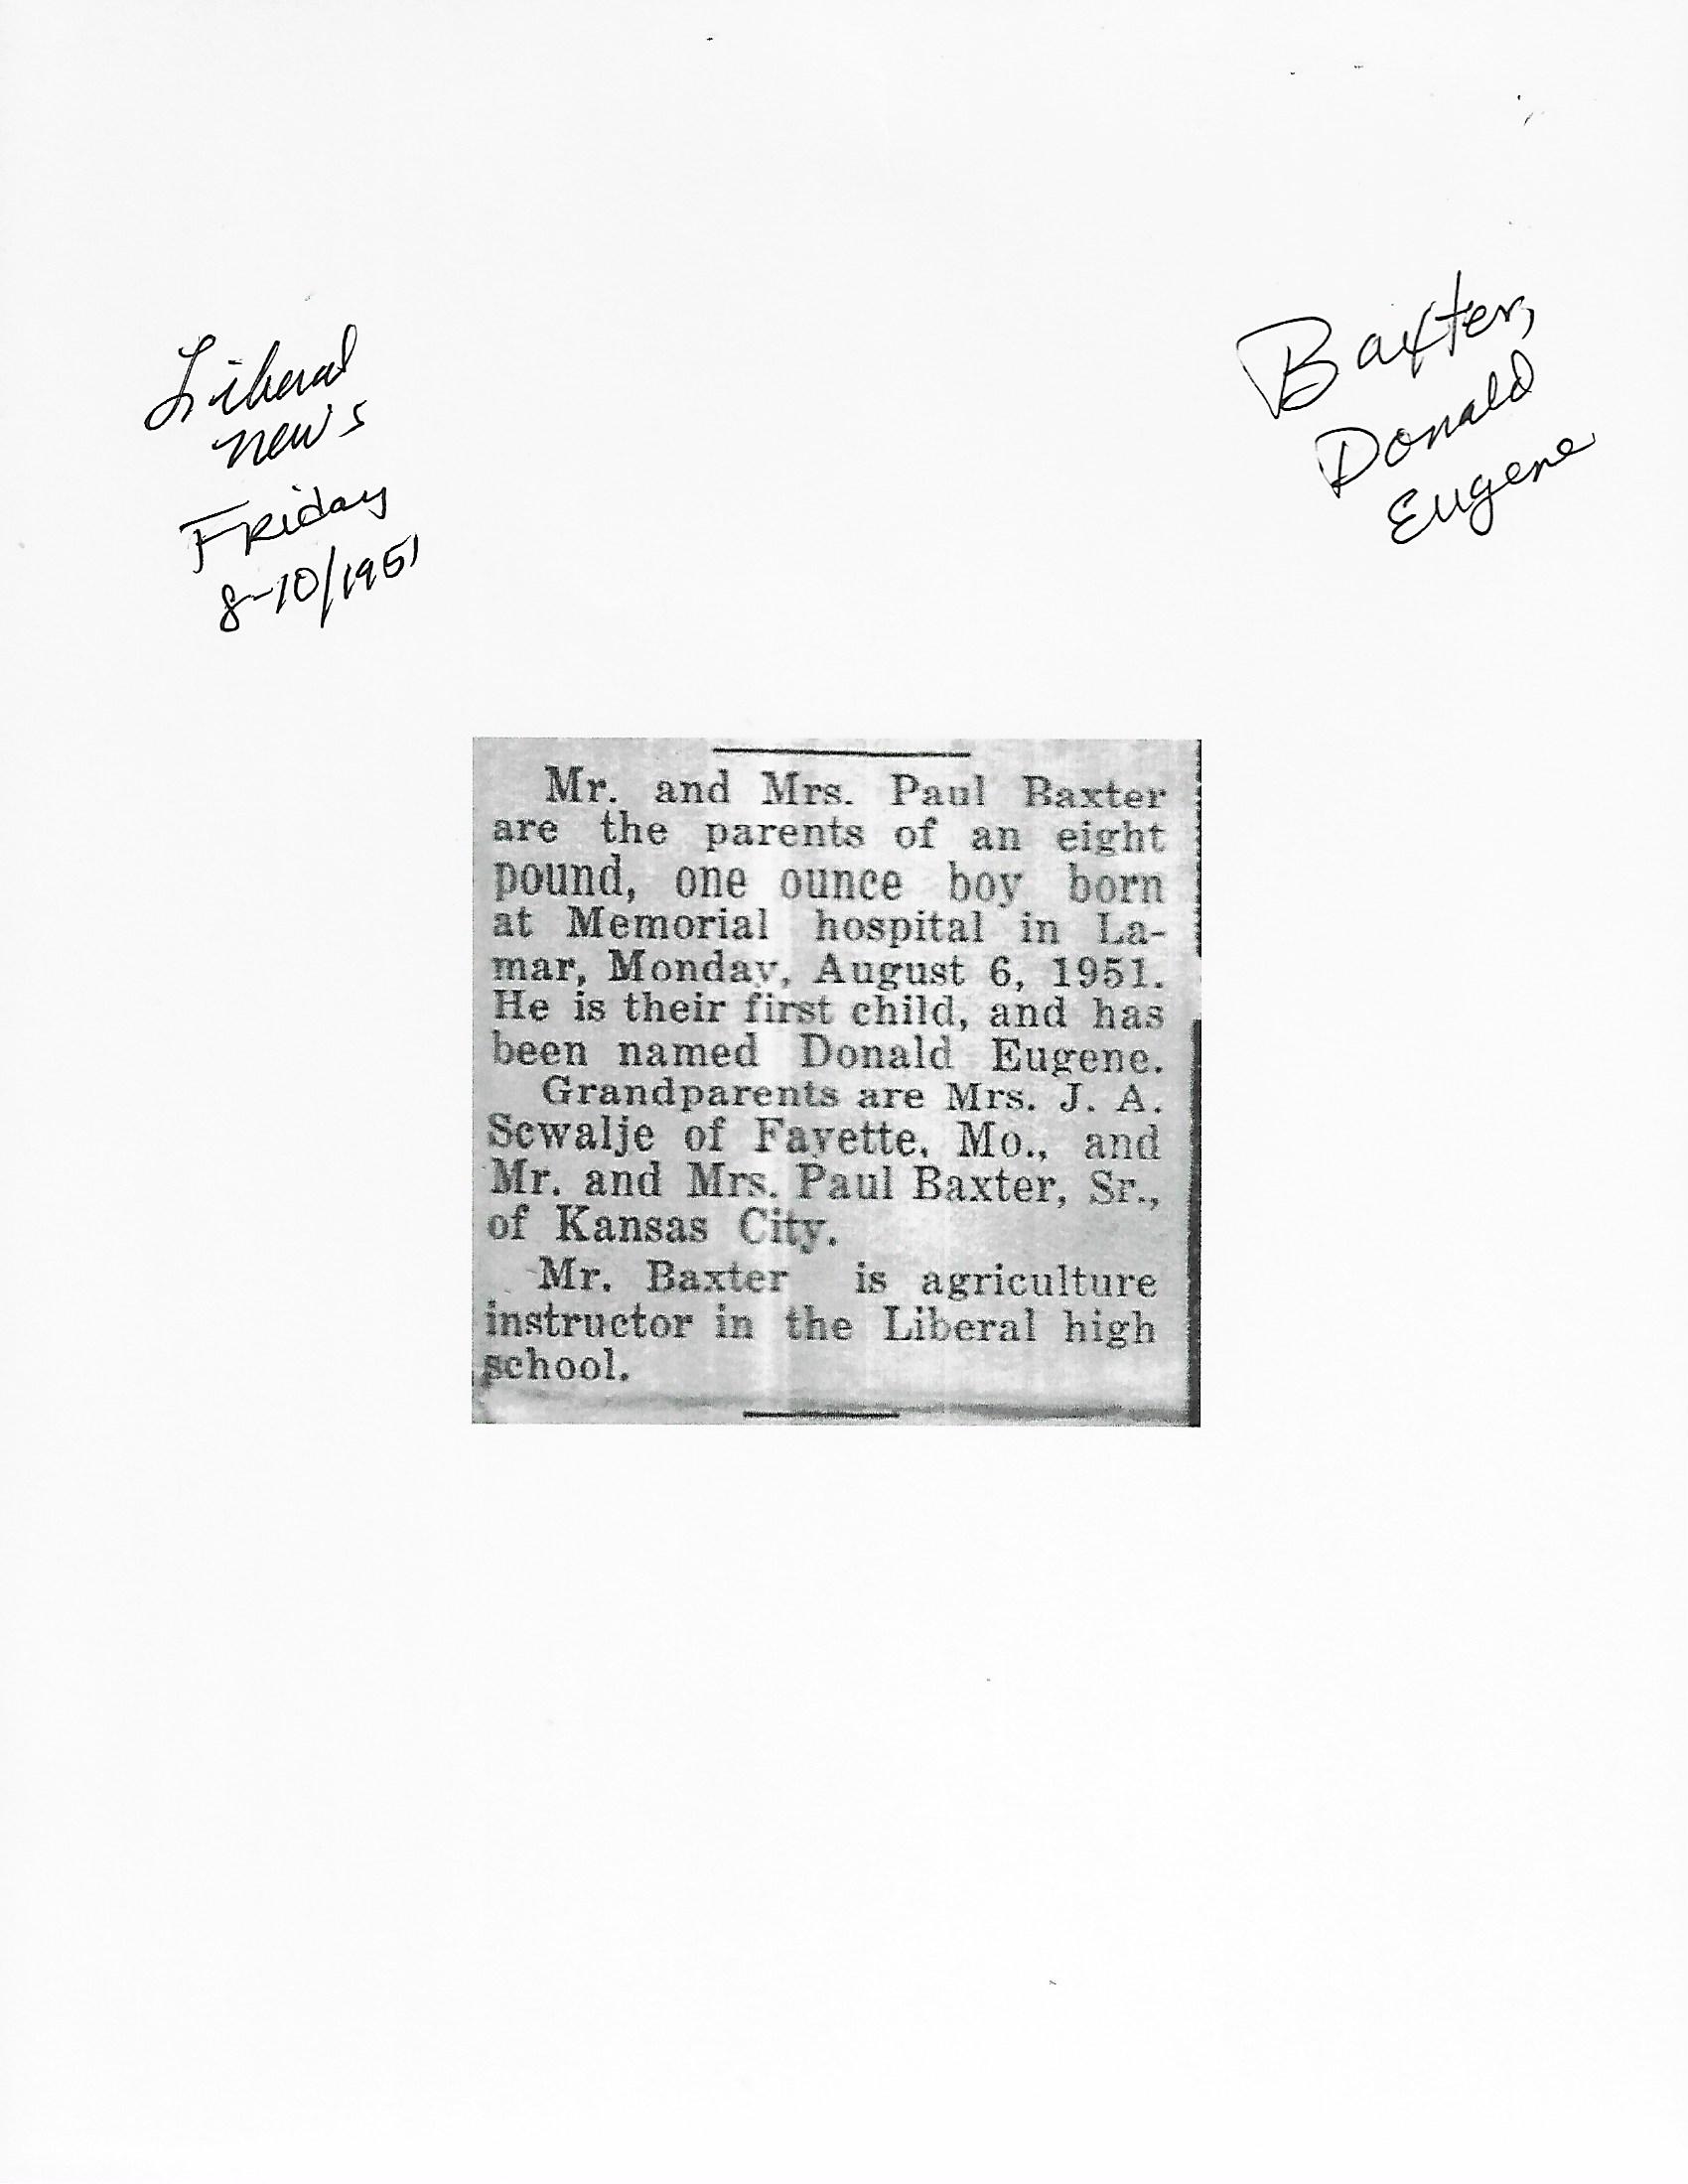 Liberal
News
Friday
8-10/1951
Baxter,
Donald
Eugene
Mr. and Mrs. Paul Baxter
are the parents of an eight
pound, one ounce boy born
at Memorial hospital in La-
mar, Monday, August 6, 1951.
He is their first child, and has
been named Donald Eugene.
Grandparents are Mrs. J. A.
Scwalje of Fayette, Mo., and
Mr. and Mrs. Paul Baxter, Sr.,
of Kansas City.
Mr. Baxter is agriculture
instructor in the Liberal high
school.